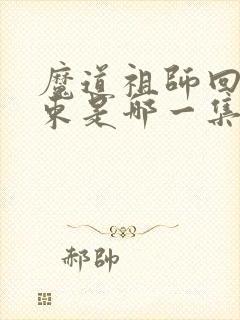 魔道祖師回
束是哪一集
郝帥